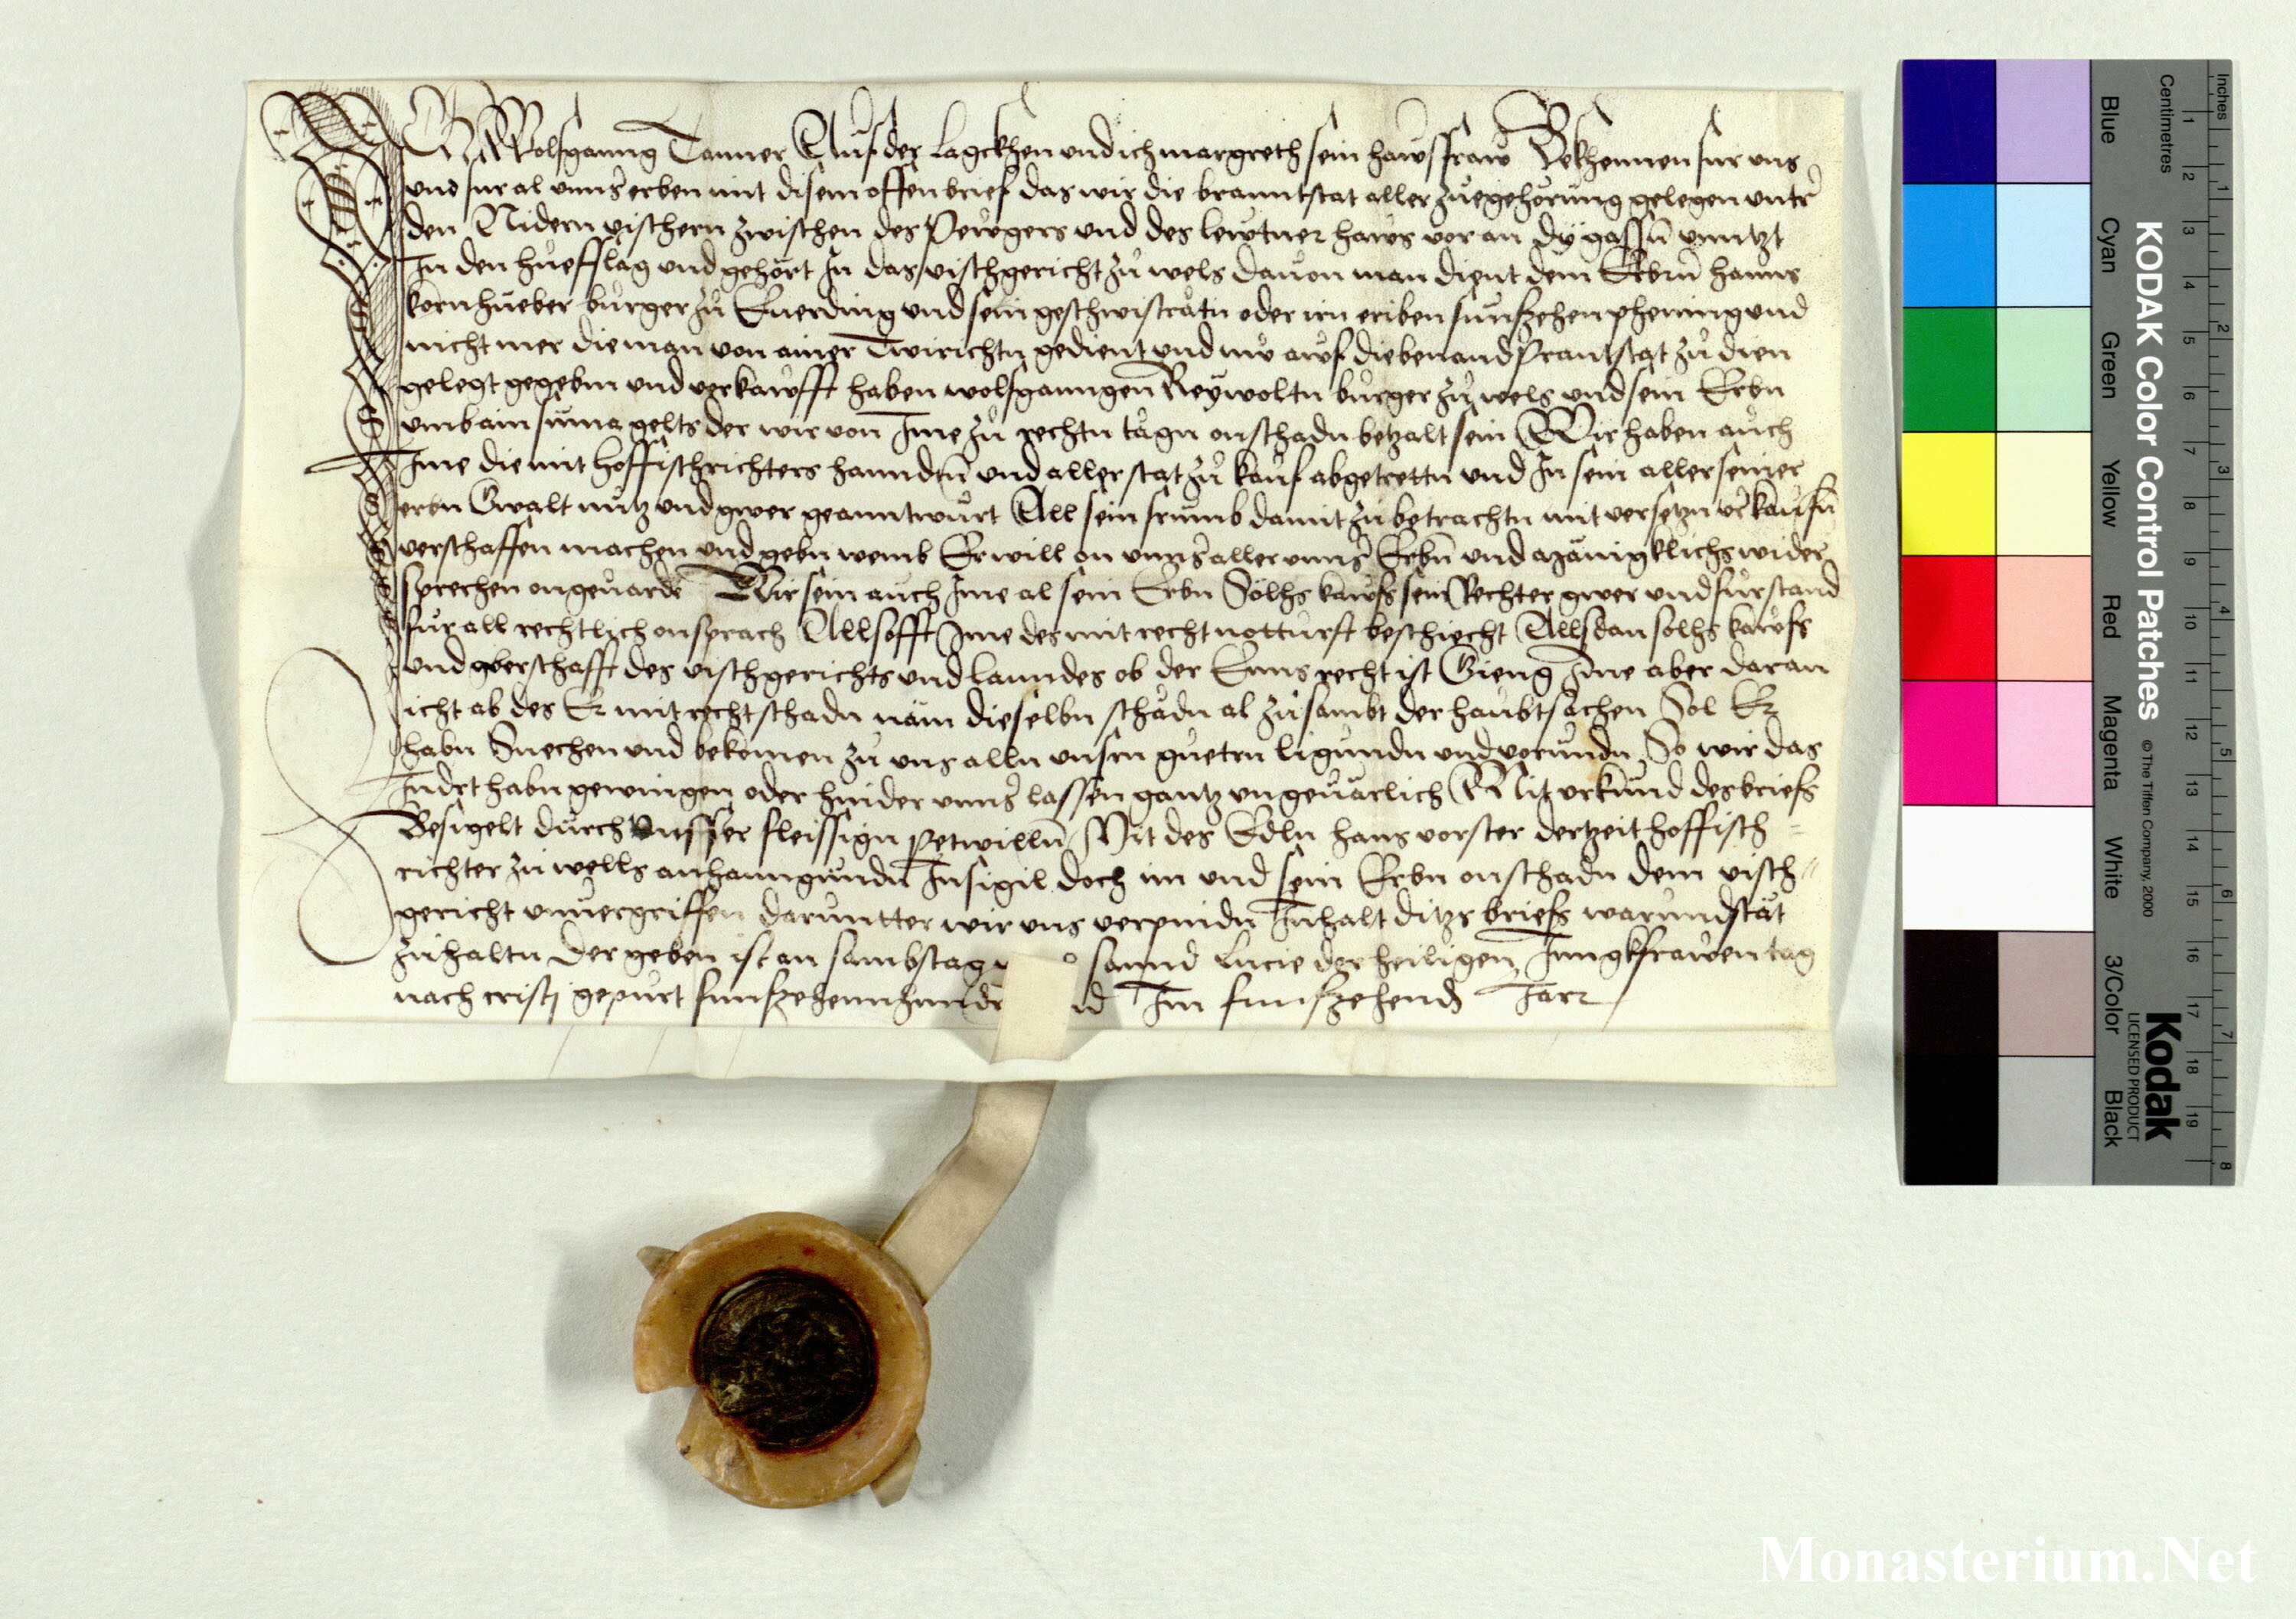 Ich Wolfganng Tanner Auf der Lagckhen und ich margreth sein hawsfraw Bekhennen fur uns
und fur al unnser erben mit disem offen brief das wir die branntstat aller zuegehörung gelegen untr
den Nidern vischern zwischen des Perϋgers und des lewtner haws vor an dy gassn unntzt
In den hüefslag und gehört In das vischgericht zu wels dauon man dient dem Erbrn hanns
kornhueber burger zu Euerding und sein geschwistratn oder irn eriben funfzehen phening und
nicht mer die man von ainer Twirichtn gedient und nw awf die benand Prantstat zu dien
gelegt gegebm und verkawfft haben wolfganngen Reywoltn burger zu wels und sein Erbn
umb ain suma gelts der wir von Ime zu rechtn tagn on schadn betzalt sein Wir haben auch
Ime die mit hoffischrichters hanndtn und aller stat zu kauf abgetrettn und In sein aller seiner
erbn Gwalt nutz und gwer geanntwurt All sein frumb damit zu betrachtn mit versetzn verkaufn
verschaffen machen und gebn wemb Er will on unnser aller unnser Erbn und mänigklichs wider
sprechen ongeuarde Wir sein auch Ime al sein Erbn Solhs kawfs sein Rechter gwer und furstand
fur all rechtlich onsprach Alls offt Ime des mit recht notturft beschiecht Alls dan solhs kawfs
und gwerschafft des vischgerichts und lanndes ob der Enns recht ist Gieng Ime aber daran
icht ab des Er mit recht schadn näm dieselbn schadn al zusambt der haubtsachen Sol Er
habn Suechen und bekomen zu uns alln unsern guetrn ligundn und vorundn So wir das
Indert habn gewingen oder hinder unnser lassen gantz ungeuärlich Mit urkund des briefs
Besigelt durch unsser fleissign petwilln Mit des Edln hans vorster dertzeit hoffisch=
richter zu wells anhanngundn Insigil doch im und sein Erbn onschadn dem visch=
gericht unuergriffen daruntter wir uns verpindn Inhalt ditzs briefs war und stät
zuhaltn Der geben ist an sambstag sannd Lucie der heiligen Jungkfrawen tag
nach cristj gepurt funfzehennhundr d Im funfzehendn Jarr
KODAK Color Control Patches
© The Tiffen Company, 2000
Kodak
LICENSED PRODUCT
Inches 1 2 3 4 5 6 7 8
Centimetres 1 2 3 4 5 6 7 8 9 10 11 12 13 14 15 16 17 18 19
Blue Cyan Green Yellow Red Magenta White 3/Color Black
Monasterium.Net